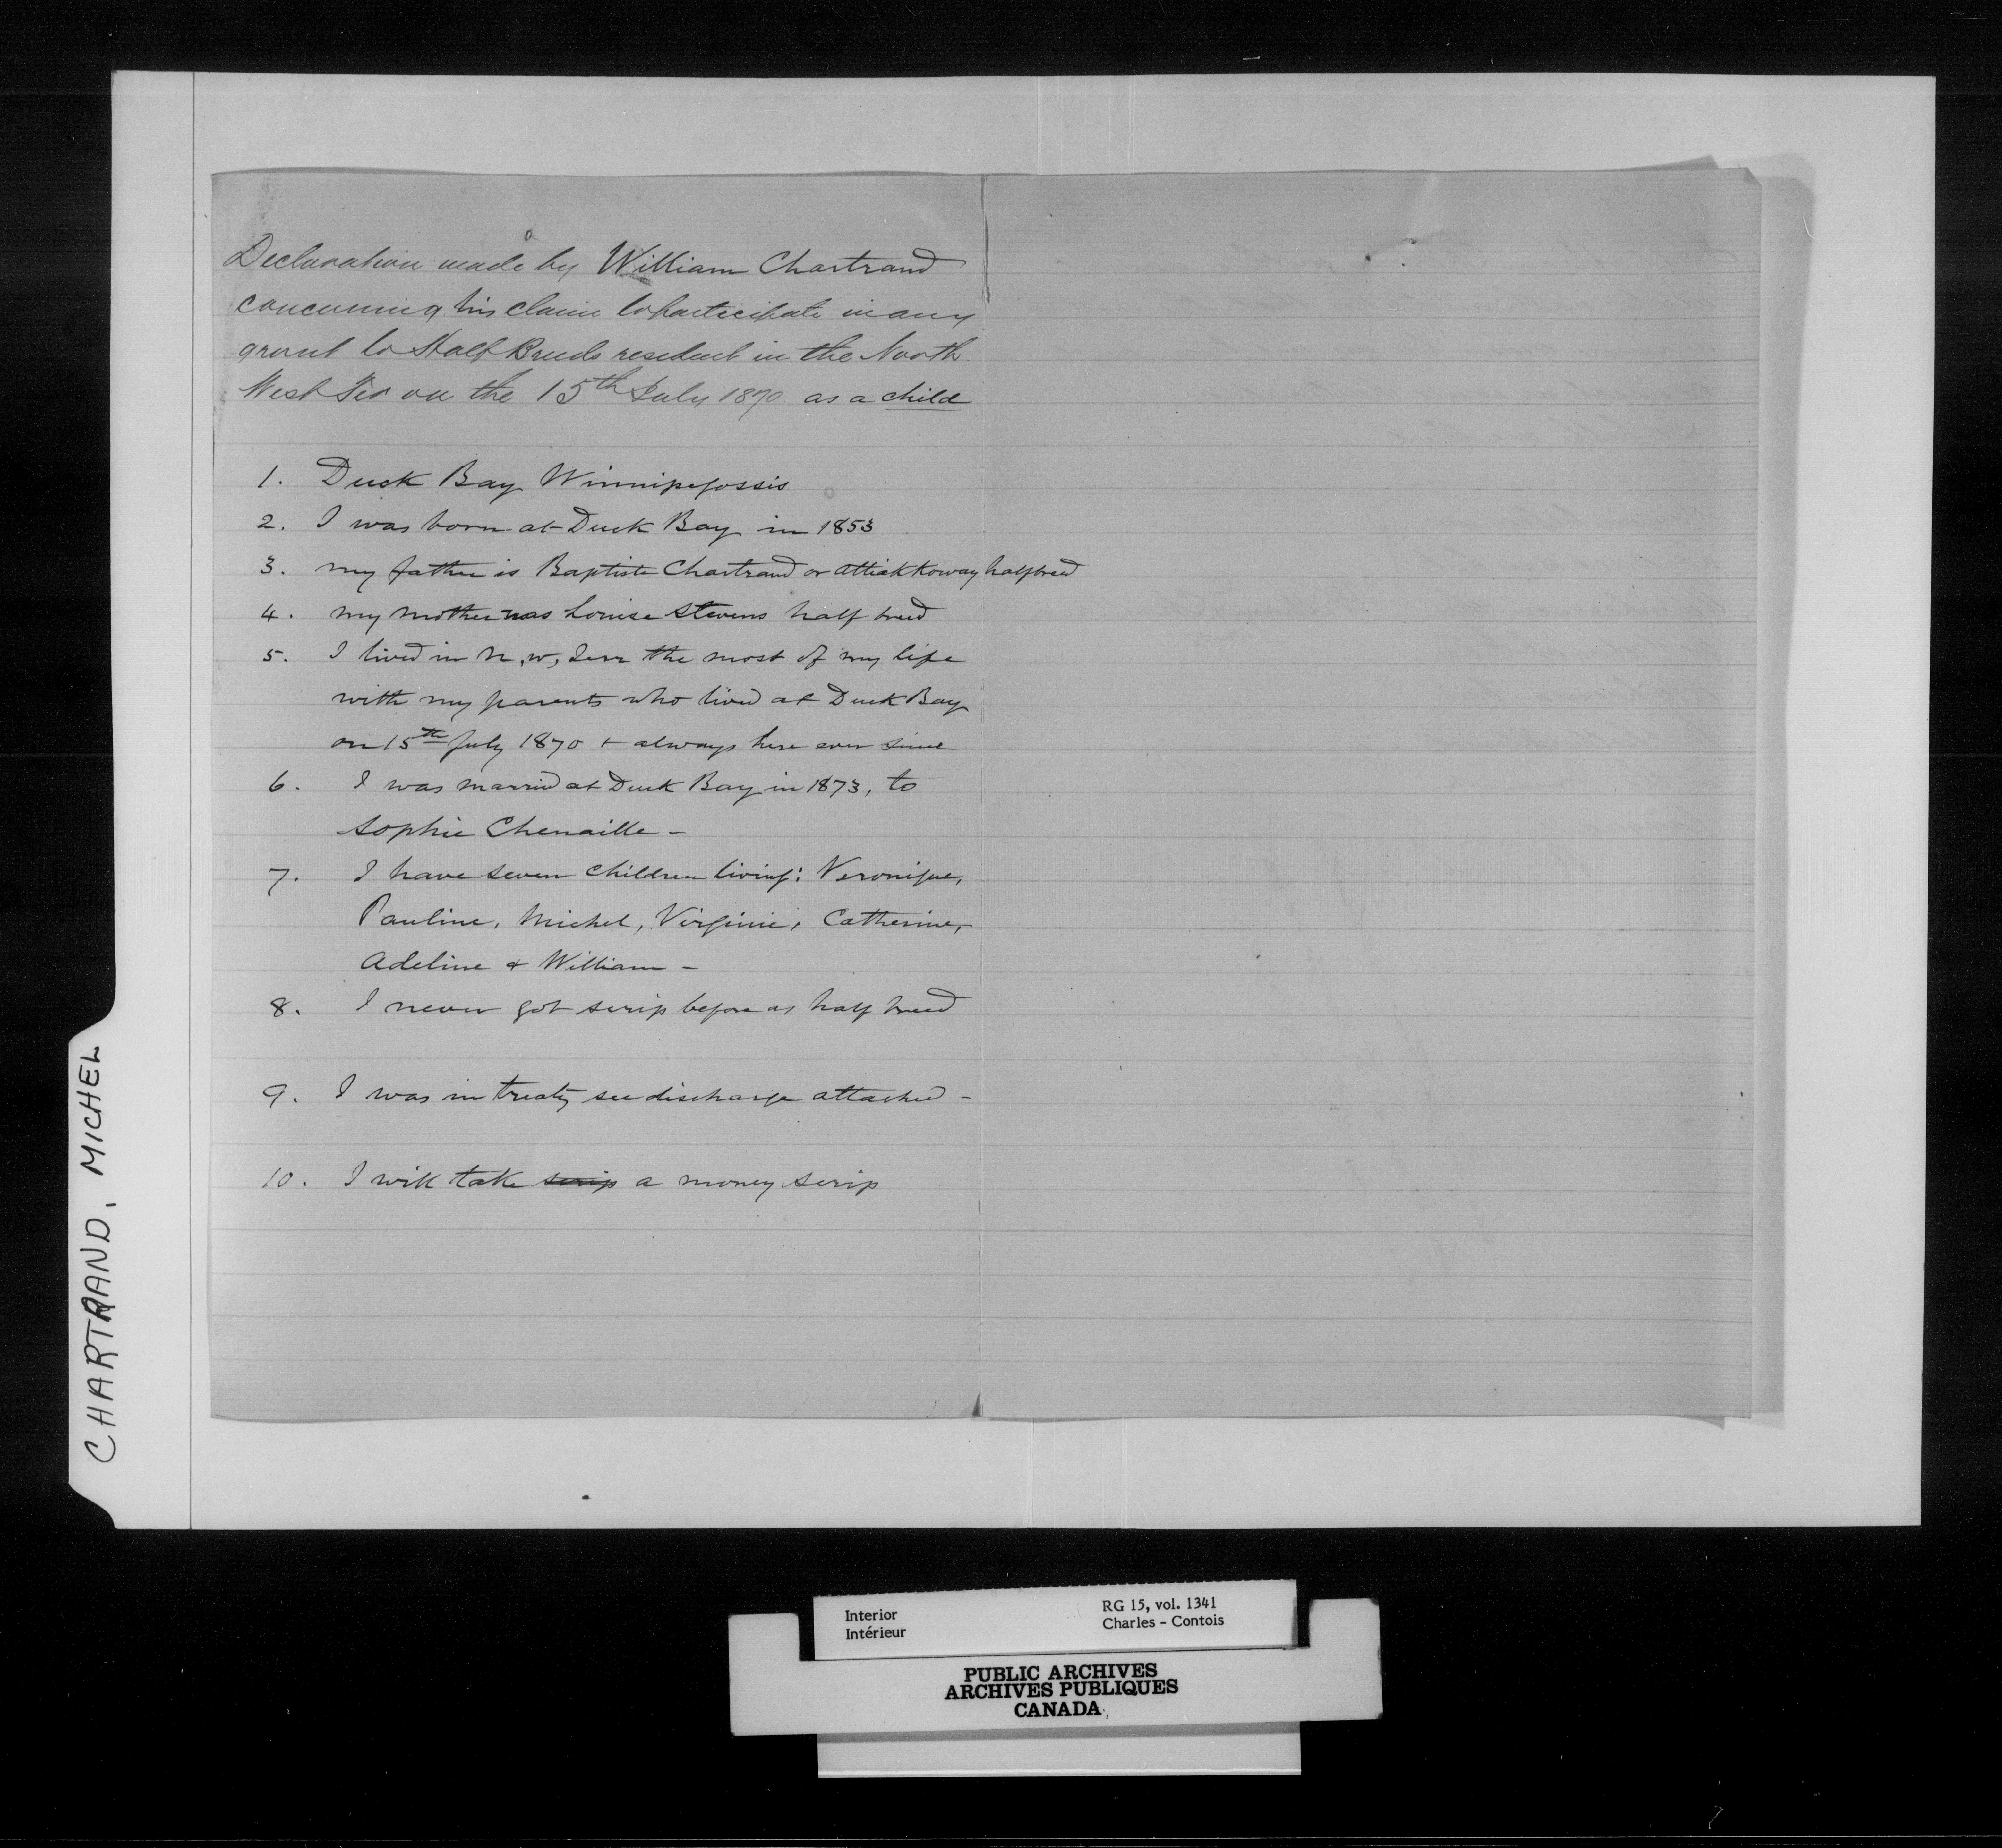 Declaration made by William Chartrand
concerning his claim to participate in any
grant to Half Breeds resident in the North
West Ter on the 15th July 1870 as a child
1. Duck Bay Winnipegossis
2. I was born at Duck Bay in 1853
3. my father is Baptiste Chartrand or Attiakkoway halfbreed
4. my mother was Louise Stevens half breed
5. I lived in N, W, Terr the most of my life
with my parents who lived at Duck Bay
on 15th July 1870 + always here ever since
6. I was married at Duck Bay in 1873, to
Sophie Chenaille -
7. I have seven children living: Veronique,
Pauline, Michel, Virginie, Catherine,
Adeline & William -
8. I never got scrip before as half breed
9. I was in treaty see discharge attached -
10. I will take scrip a money scrip
CHARTRAND, MICHEL
Interior
Intérieur
RG 15, vol. 1341
Charles - Contois
PUBLIC ARCHIVES
ARCHIVES PUBLIQUES
CANADA